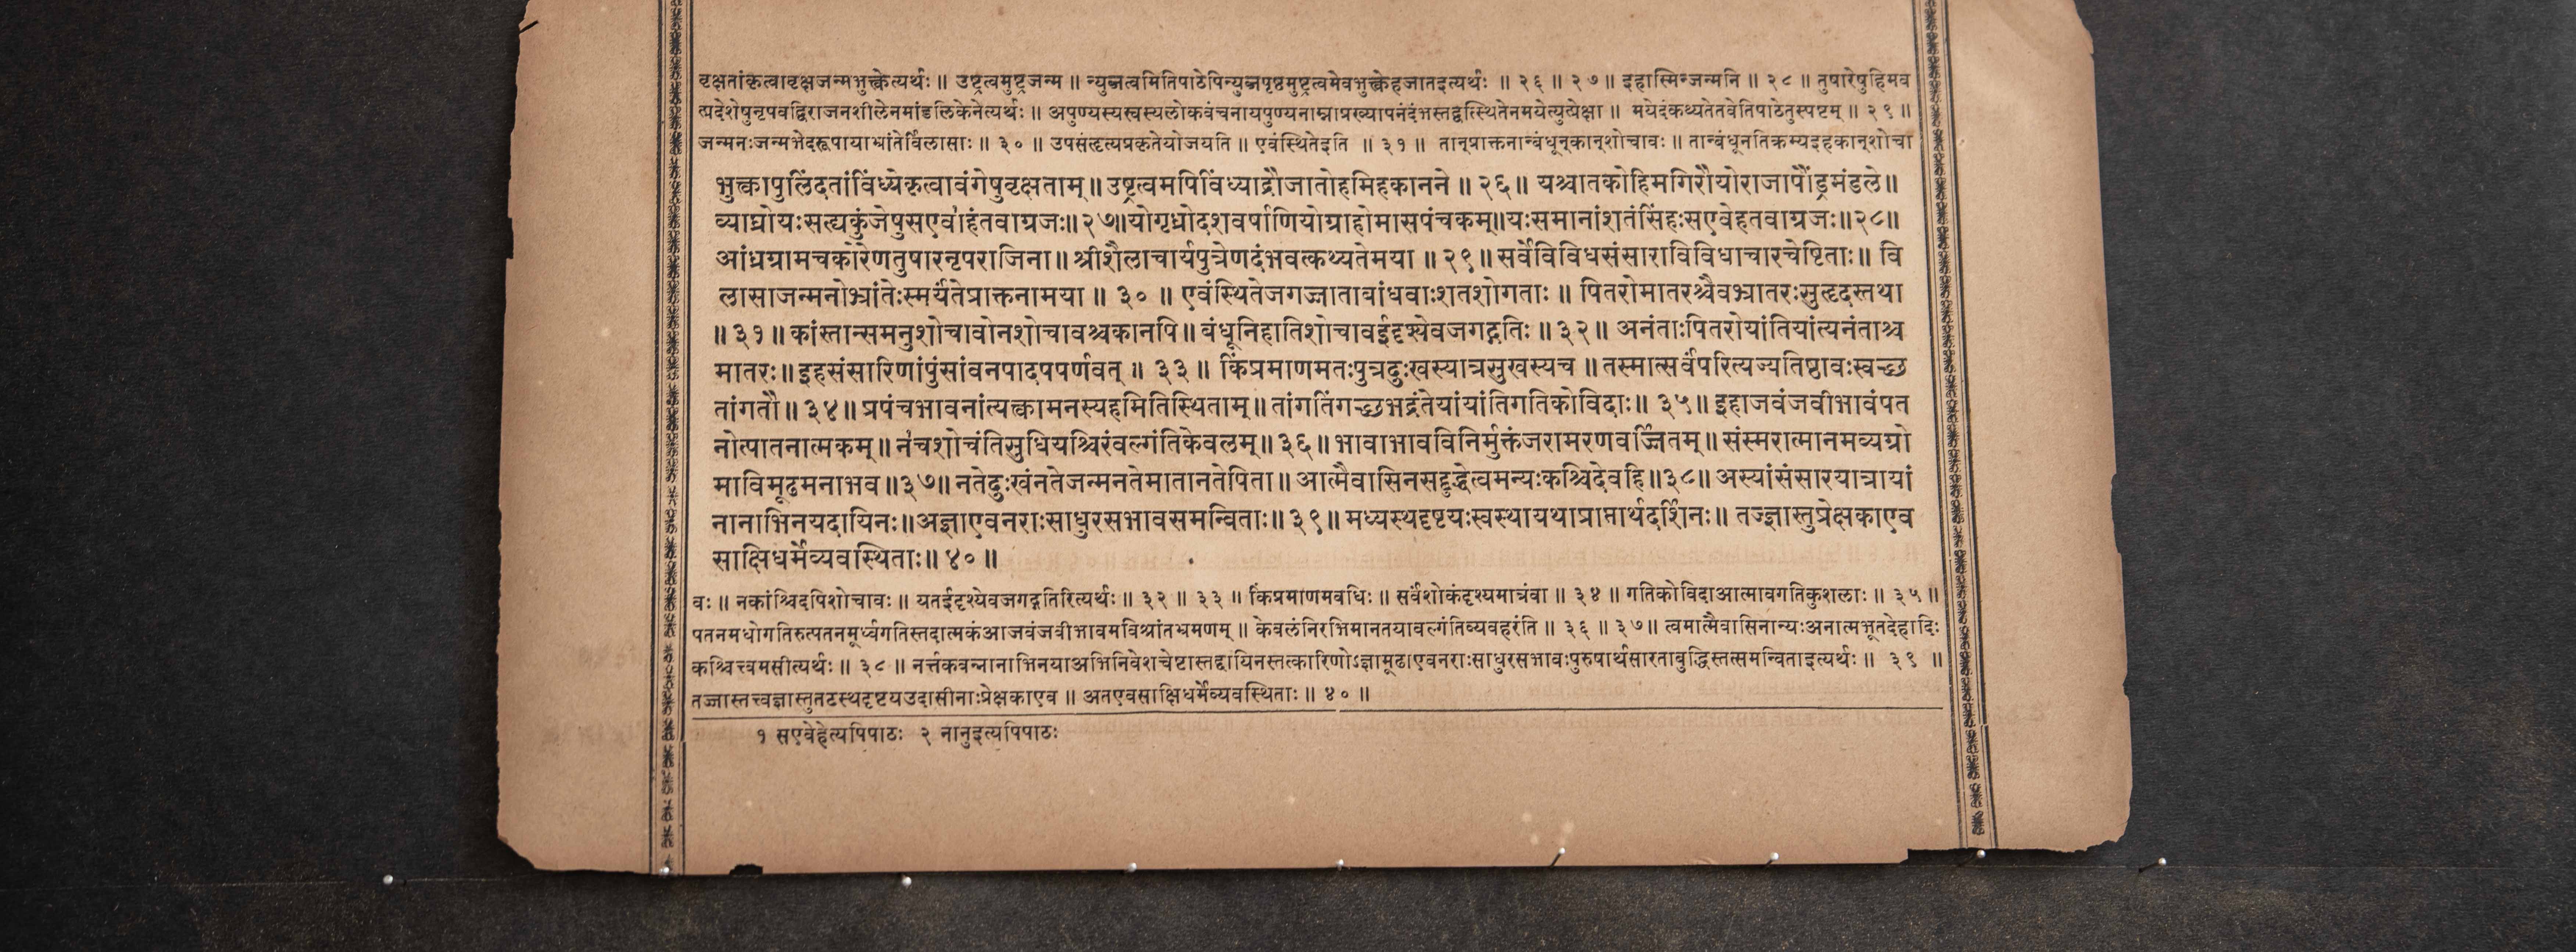 वृक्षतांकृत्वावृक्षजन्मभुक्त्वेत्यर्थः ॥ उष्ट्रत्वमुष्ट्रजन्म ॥ न्युब्जत्वमितिपाठेपिन्युब्जपृष्ठमुष्ट्रत्वमेवभुक्त्वेहजातइत्यर्थः ॥ २६ ॥ २७ ॥ इहास्मिञ्जन्मनि ॥ २८ ॥ तुषारेषुहिमव
त्प्रदेशेषुनृपवद्विराजनशीलेनमांडलिकेनेत्यर्थः ॥ अपुण्यस्यस्वस्यलोकवंचनायपुण्यनाम्नाप्रख्यापनंदंभस्तद्वत्स्थितेनमयेत्युत्प्रेक्षा ॥ मयेदंकथ्यतेतवेतिपाठेतुस्पष्टम् ॥ २९ ॥
जन्मनःजन्मभेदरूपायाभ्रांतेर्विलासाः ॥ ३० ॥ उपसंहृत्यप्रकृतेयोजयति ॥ एवंस्थितेइति ॥ ३१ ॥ तान्प्राक्तनान्बंधून्कान्शोचावः ॥ तान्बंधूनतिक्रम्यइहकान्शोचा
भुक्त्वापुलिंदतांविंध्येकृत्वावंगेषुवृक्षताम् ॥ उष्ट्रत्वमपिविंध्याद्रौजातोहमिहकानने ॥ २६ ॥ यश्चातकोहिमगिरौयोराजापौंड्रमंडले ॥
व्याघ्रोयःसह्यकुंजेषुसएवा१हंतवाग्रजः ॥ २७ ॥ योगृध्रोदशवर्षाणियोग्राहोमासपंचकम् ॥ यःसमानांशतंसिंहःसएवेहतवाग्रजः ॥ २८ ॥
आंध्रग्रामचकोरेणतुषारनृपराजिना ॥ श्रीशैलाचार्यपुत्रेणदंभवत्कथ्यतेमया ॥ २९ ॥ सर्वेविविधसंसाराविविधाचारचेष्टिताः ॥ वि
लासाजन्मनोभ्रांतेःस्मर्यंतेप्राक्तनामया ॥ ३० ॥ एवंस्थितेजगज्जाताबांधवाःशतशोगताः ॥ पितरोमातरश्चैवभ्रातरःसुहृदस्तथा
॥ ३१ ॥ कांस्तान्समनुशोचावोनशोचावश्चकानपि ॥ बंधूनिहातिशोचावईदृश्येवजगद्गतिः ॥ ३२ ॥ अनंताःपितरोयांतियांत्यनंताश्च
मातरः ॥ इहसंसारिणांपुंसांवनपादपपर्णवत् ॥ ३३ ॥ किंप्रमाणमतःपुत्रदुःखस्यात्रसुखस्यच ॥ तस्मात्सर्वंपरित्यज्यतिष्ठावःस्वच्छ
तांगतौ ॥ ३४ ॥ प्रपंचभावनांत्यक्त्वामनस्यहमितिस्थिताम् ॥ तांगतिंगच्छभद्रंतेयांयांतिगतिकोविदाः ॥ ३५ ॥ इहाजवंजवीभावंपत
नोत्पातनात्मकम् ॥ न२चशोचंतिसुधियश्चिरंवल्गंतिकेवलम् ॥ ३६ ॥ भावाभावविनिर्मुक्तंजरामरणवर्ज्जितम् ॥ संस्मरात्मानमव्यग्रो
माविमूढमनाभव ॥ ३७ ॥ नतेदुःखंनतेजन्मनतेमातानतेपिता ॥ आत्मैवासिनसद्बुद्धेत्वमन्यःकश्चिदेवहि ॥ ३८ ॥ अस्यांसंसारयात्रायां
नानाभिनयदायिनः ॥ अज्ञाएवनराःसाधुरसभावसमन्विताः ॥ ३९ ॥ मध्यस्थदृष्टयःस्वस्थायथाप्राप्तार्थदर्शिनः ॥ तज्ज्ञास्तुप्रेक्षकाएव
साक्षिधर्मेव्यवस्थिताः ॥ ४० ॥
वः ॥ नकांश्चिदपिशोचावः ॥ यतईदृश्येवजगद्गतिरित्यर्थः ॥ ३२ ॥ ३३ ॥ किंप्रमाणमवधिः ॥ सर्वंशोकंदृश्यमात्रंवा ॥ ३४ ॥ गतिकोविदाआत्मावगतिकुशलाः ॥ ३५ ॥
पतनमधोगतिरुत्पतनमूर्ध्वगतिस्तदात्मकंआजवंजवीभावमविश्रांतभ्रमणम् ॥ केवलंनिरभिमानतयावल्गंतिव्यवहरंति ॥ ३६ ॥ ३७ ॥ त्वमात्मैवासिनान्यःअनात्मभूतदेहादिः
कश्चित्त्वमसीत्यर्थः ॥ ३८ ॥ नर्त्तकवन्नानाभिनयाअभिनिवेशचेष्टास्तद्दायिनस्तत्कारिणोऽज्ञामूढाएवनराःसाधुरसभावःपुरुषार्थसारताबुद्धिस्तत्समन्विताइत्यर्थः ॥ ३९ ॥
तज्ज्ञास्तत्त्वज्ञास्तुतटस्थदृष्टयउदासीनाःप्रेक्षकाएव ॥ अतएवसाक्षिधर्मेव्यवस्थिताः ॥ ४० ॥
१ सएवेहेत्यपिपाठः २ नानुइत्यपिपाठः